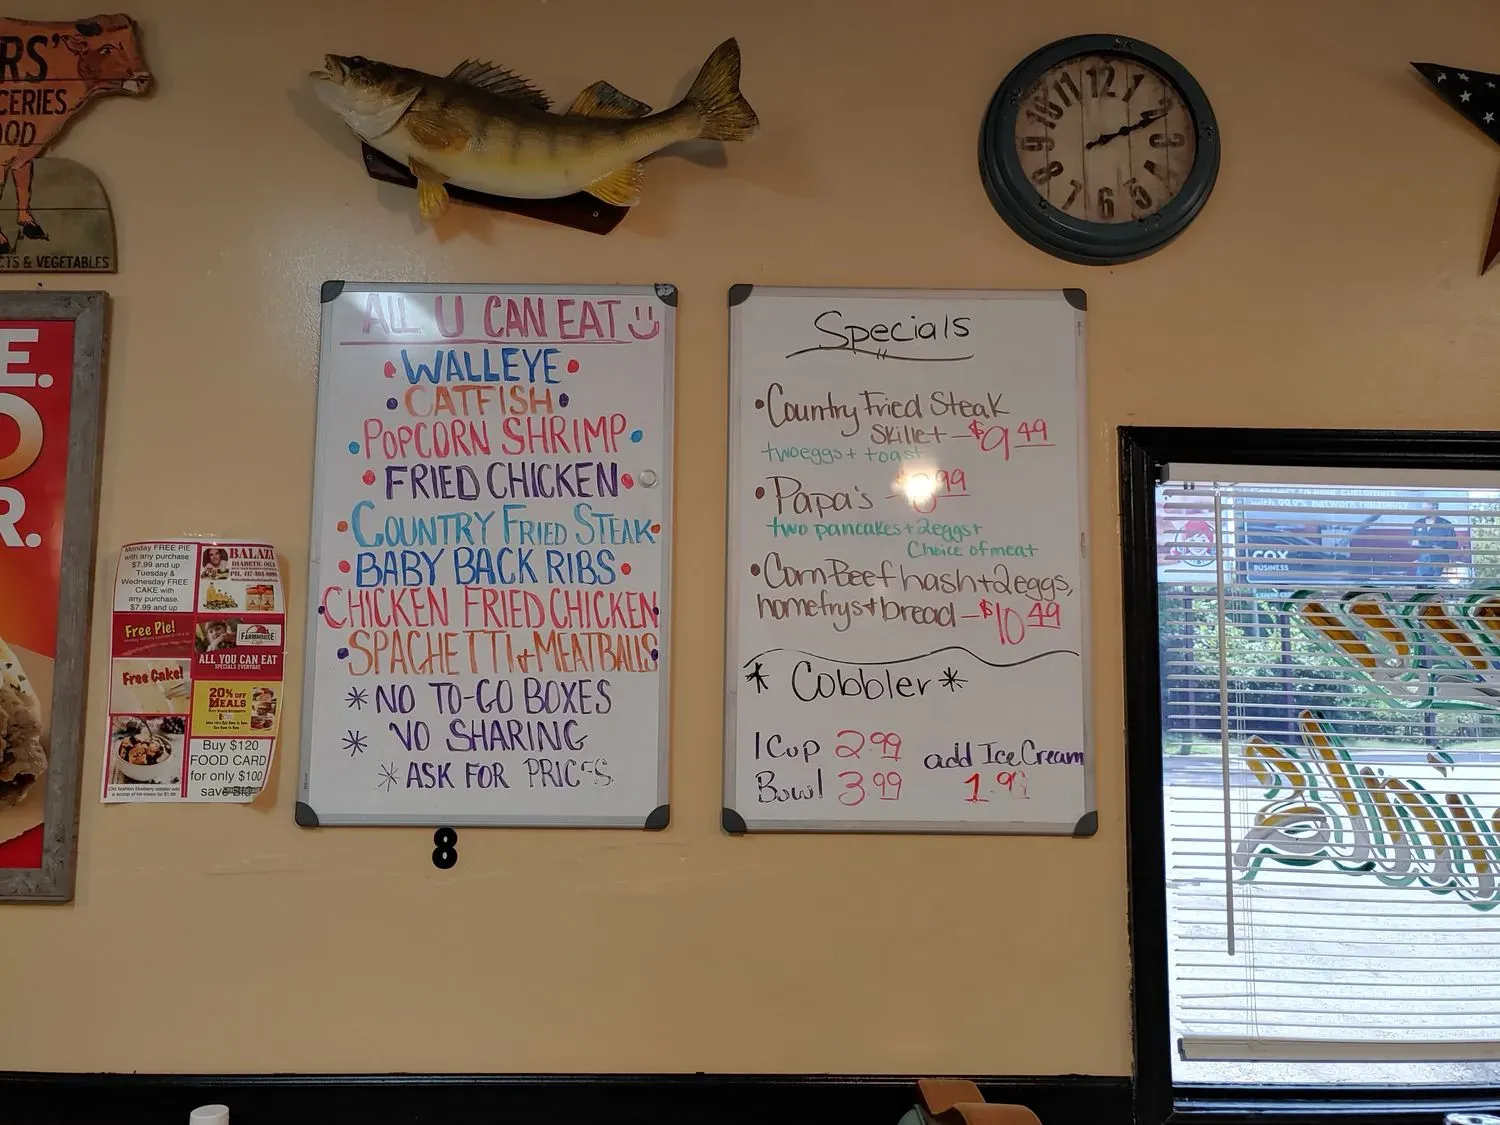 RS'
CERIES
OOD
CTS & VEGETABLES
12
1
2
3
5
6
7
8
9
10
11
E.
O
R.
ALL U CAN EAT
WALLEYE
CATFISH
POPCORN SHRIMP
FRIED CHICKEN
COUNTRY FRIED STEAK
BABY BACK RIBS
CHICKEN FRIED CHICKEN
SPAGHETTI + MEATBALLS
* NO TO-GO BOXES
* NO SHARING
* ASK FOR PRICES
8
Specials
• Country Fried Steak
Skillet - $9.49
two eggs + toast
• Papa's - 99
two pancakes + 2 eggs +
Choice of meat
• Corn Beef hash + 2 eggs,
homefrys + bread - $10.49
* Cobbler *
1 Cup 2.99
Bowl 3.99
add Ice Cream
1.99
Monday FREE PIE
with any purchase
$7.99 and up
Tuesday &
Wednesday FREE
CAKE with
any purchase
$7.99 and up
Free Pie!
Free Cake!
Old fashion blueberry cobbler add
a scoop of ice cream for $1.99
BALAZA
DIABETIC OILS
FARMHOUSE
ALL YOU CAN EAT
SPECIALS EVERYDAY
20% OFF
MEALS
Buy $120
FOOD CARD
for only $100
save
COX
BUSINESS